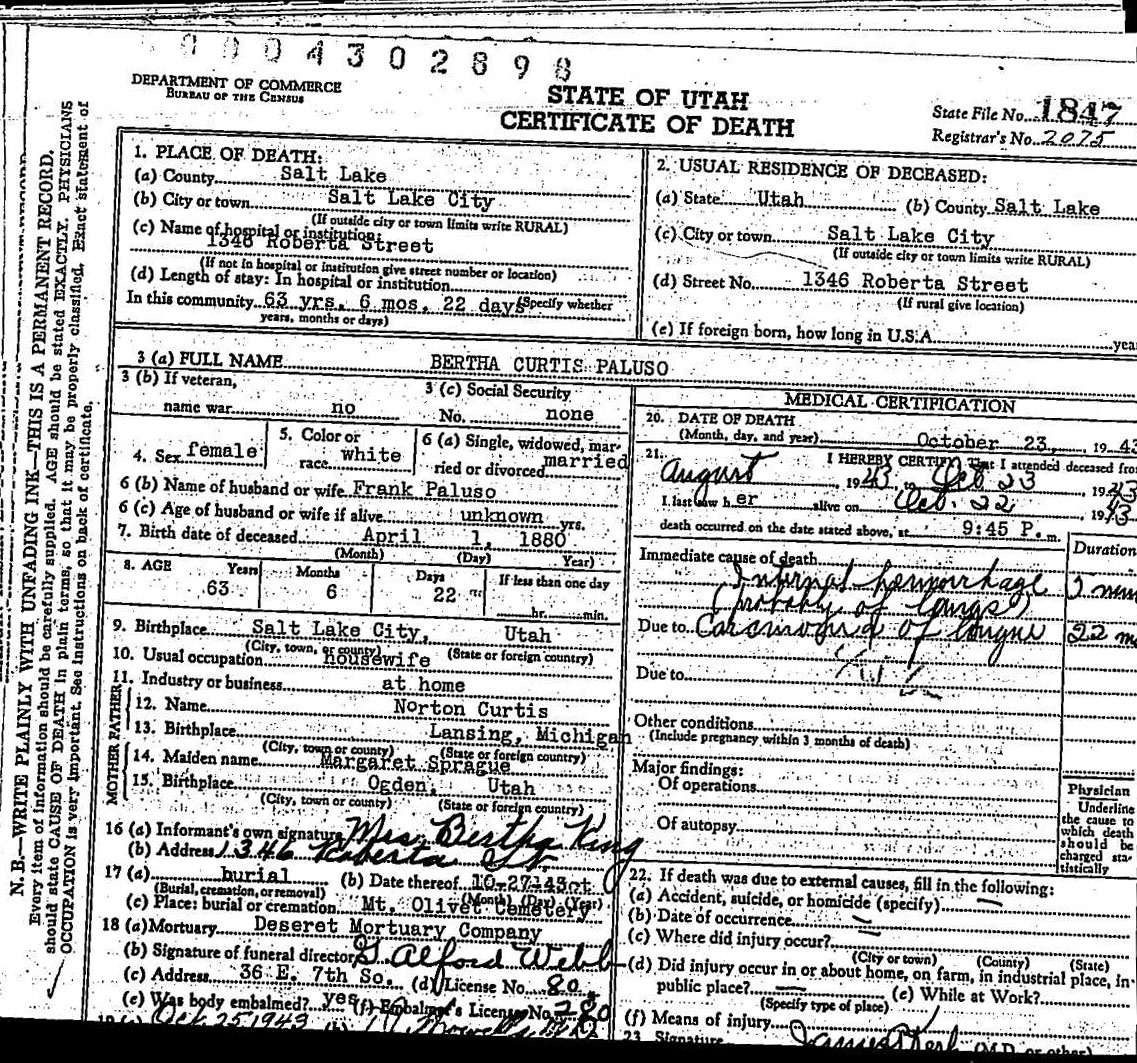 0004302898
DEPARTMENT OF COMMERCE
BUREAU OF THE CENSUS
STATE OF UTAH
CERTIFICATE OF DEATH
State File No. 1847
Registrar's No. 2075
N.B.—WRITE PLAINLY WITH UNFADING INK—THIS IS A PERMANENT RECORD.
Every item of information should be carefully supplied. AGE should be stated EXACTLY. PHYSICIANS
should state CAUSE OF DEATH in plain terms, so that it may be properly classified. Exact statement of
OCCUPATION is very important. See instructions on back of certificate.
1. PLACE OF DEATH:
(a) County Salt Lake
(b) City or town Salt Lake City
(If outside city or town limits write RURAL)
(c) Name of hospital or institution:
1346 Roberta Street
(If not in hospital or institution give street number or location)
(d) Length of stay: In hospital or institution
In this community 63 yrs. 6 mos. 22 days (Specify whether
years, months or days)
2. USUAL RESIDENCE OF DECEASED:
(a) State Utah (b) County Salt Lake
(c) City or town Salt Lake City
(If outside city or town limits write RURAL)
(d) Street No. 1346 Roberta Street
(If rural give location)
(e) If foreign born, how long in U.S.A. yea
3 (a) FULL NAME BERTHA CURTIS PALUSO
3 (b) If veteran, name war no
3 (c) Social Security No. none
4. Sex female
5. Color or race white
6 (a) Single, widowed, married or divorced married
6 (b) Name of husband or wife Frank Paluso
6 (c) Age of husband or wife if alive unknown yrs.
7. Birth date of deceased April 1, 1880
(Month) (Day) Year)
8. AGE Years Months Days If less than one day
63 6 22 hr. min.
9. Birthplace Salt Lake City, Utah
(City, town, or county) (State or foreign country)
10. Usual occupation housewife
11. Industry or business at home
FATHER
12. Name Norton Curtis
13. Birthplace Lansing, Michigan
(City, town or county) (State or foreign country)
MOTHER
14. Maiden name Margaret Sprague
15. Birthplace Ogden, Utah
(City, town or county) (State or foreign country)
16 (a) Informant's own signature Mrs. Bertha King
(b) Address 1346 Roberta St.
17 (a) burial (b) Date thereof 10-27-43
(Burial, cremation, or removal) (Month) (Day) (Year)
(c) Place: burial or cremation Mt. Olivet Cemetery
18 (a) Mortuary Deseret Mortuary Company
(b) Signature of funeral director G Alford Webb
(c) Address 36 E. 7th So. (d) License No. 80
(e) Was body embalmed? yes (f) Embalmer's License No. 280
Oct 25 1943
MEDICAL CERTIFICATION
20. DATE OF DEATH
(Month, day, and year) October 23, 194
21. I HEREBY CERTIFY That I attended deceased from
August 1943 to Oct 23, 1943
I last saw her alive on Oct. 22, 1943
death occurred on the date stated above, at 9:45 P. m.
Duration
Immediate cause of death
Internal hemorrhage
(probably of lungs)
Due to Carcinoma of tongue 22 m
Due to
Other conditions
(Include pregnancy within 3 months of death)
Major findings:
Of operations
Of autopsy
Physician
Underline
the cause to
which death
should be
charged sta-
tistically
22. If death was due to external causes, fill in the following:
(a) Accident, suicide, or homicide (specify) —
(b) Date of occurrence —
(c) Where did injury occur? —
(City or town) (County) (State)
(d) Did injury occur in or about home, on farm, in industrial place, in
public place? — (e) While at Work?
(Specify type of place)
(f) Means of injury
23. Signature (M.D. or other)